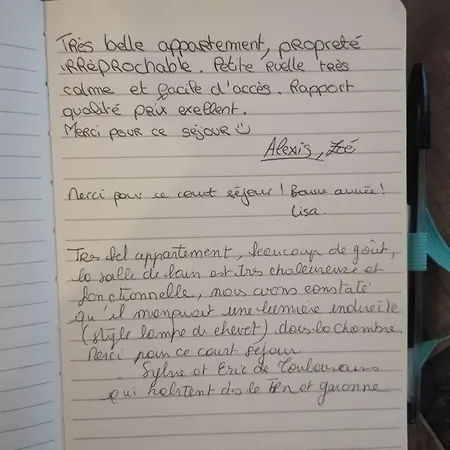 Très belle appartement, propreté
irréprochable. Petite ruelle très
calme et facile d'accès. Rapport
qualité prix exellent.
Merci pour ce séjour ☺
Alexis, Zoé
Merci pour ce court séjour ! Bonne année !
Lisa.
Tres bel appartement, beaucoup de goût,
la salle de bain est très chaleureuse et
fonctionnelle, nous avons constaté
qu'il manquait une lumière indirecte
(style lampe de chevet) dans la chambre
Merci pour ce court séjour
Sylvie et Eric de
qui habitent ds le et garonne